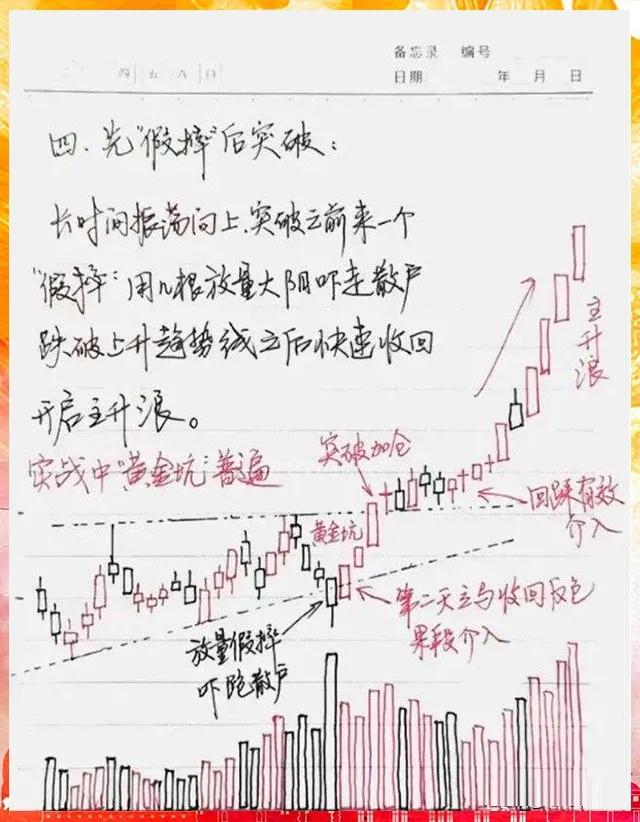 备忘录 编号
四 五 六 日
日期: 年 月 日
四、先"假摔"后突破:
长时间振荡向上,突破之前来一个
"假摔":用几根放量大阴吓走散户
跌破上升趋势线之后快速收回
开启主升浪。
实战中"黄金坑"普遍
主升浪
突破加仓
回踩有效
介入
黄金坑
第二天立马收回反包
果段介入
放量假摔
吓跑散户